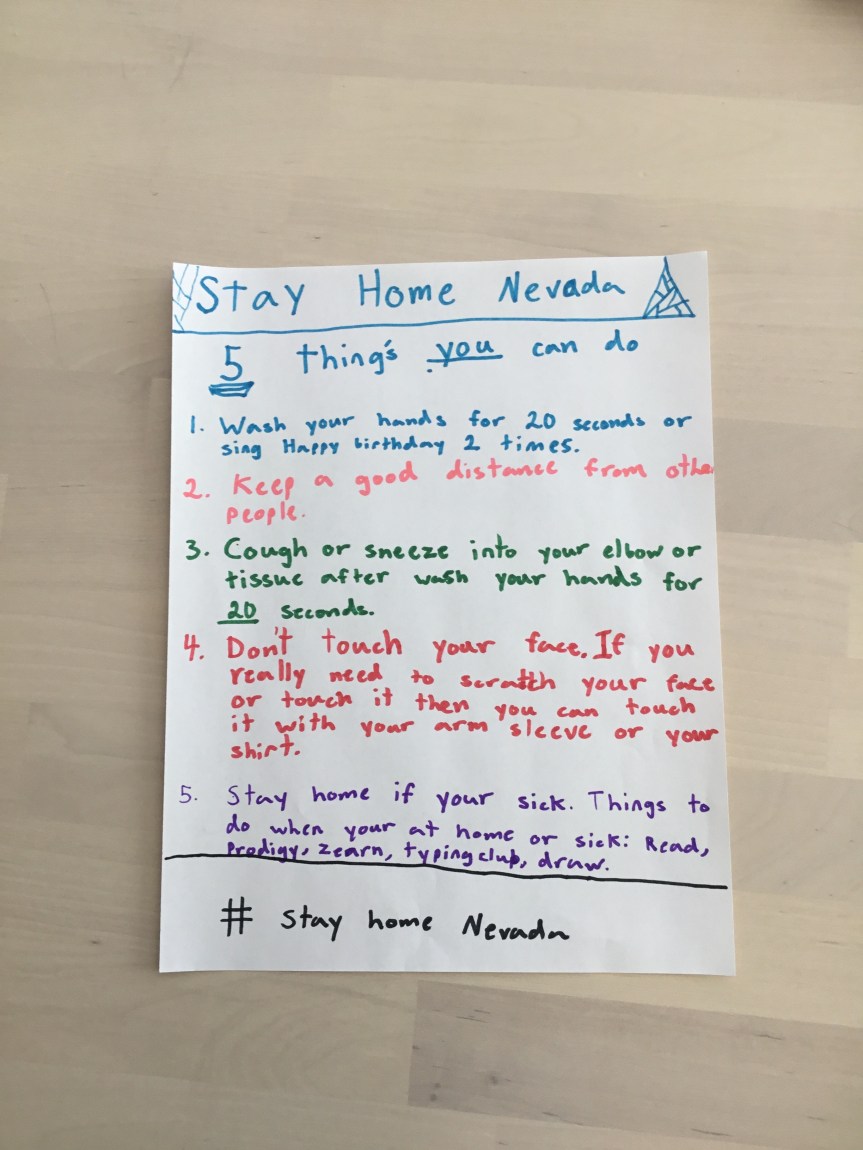 Stay Home Nevada
5 thing's you can do
1. Wash your hands for 20 seconds or
sing Happy birthday 2 times.
2. Keep a good distance from othe
people.
3. Cough or sneeze into your elbow or
tissue after wash your hands for
20 seconds.
4. Don't touch your face. If you
really need to scratch your face
or touch it then you can touch
it with your arm sleeve or your
shirt.
5. Stay home if your sick. Things to
do when your at home or sick: Read,
Prodigy, Zearn, typing club, draw.
# stay home Nevada